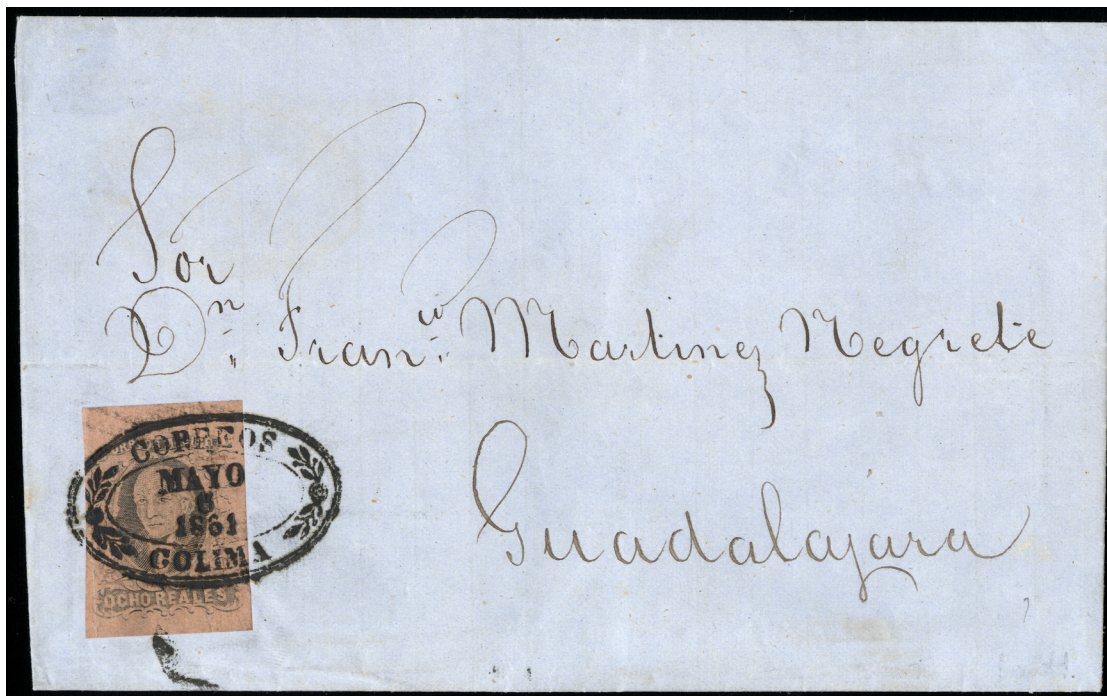 Sor
Dn. Franco. Martinez Negrete
Guadalajara
CORREOS
MAYO
6
1861
COLIMA
OCHO REALES